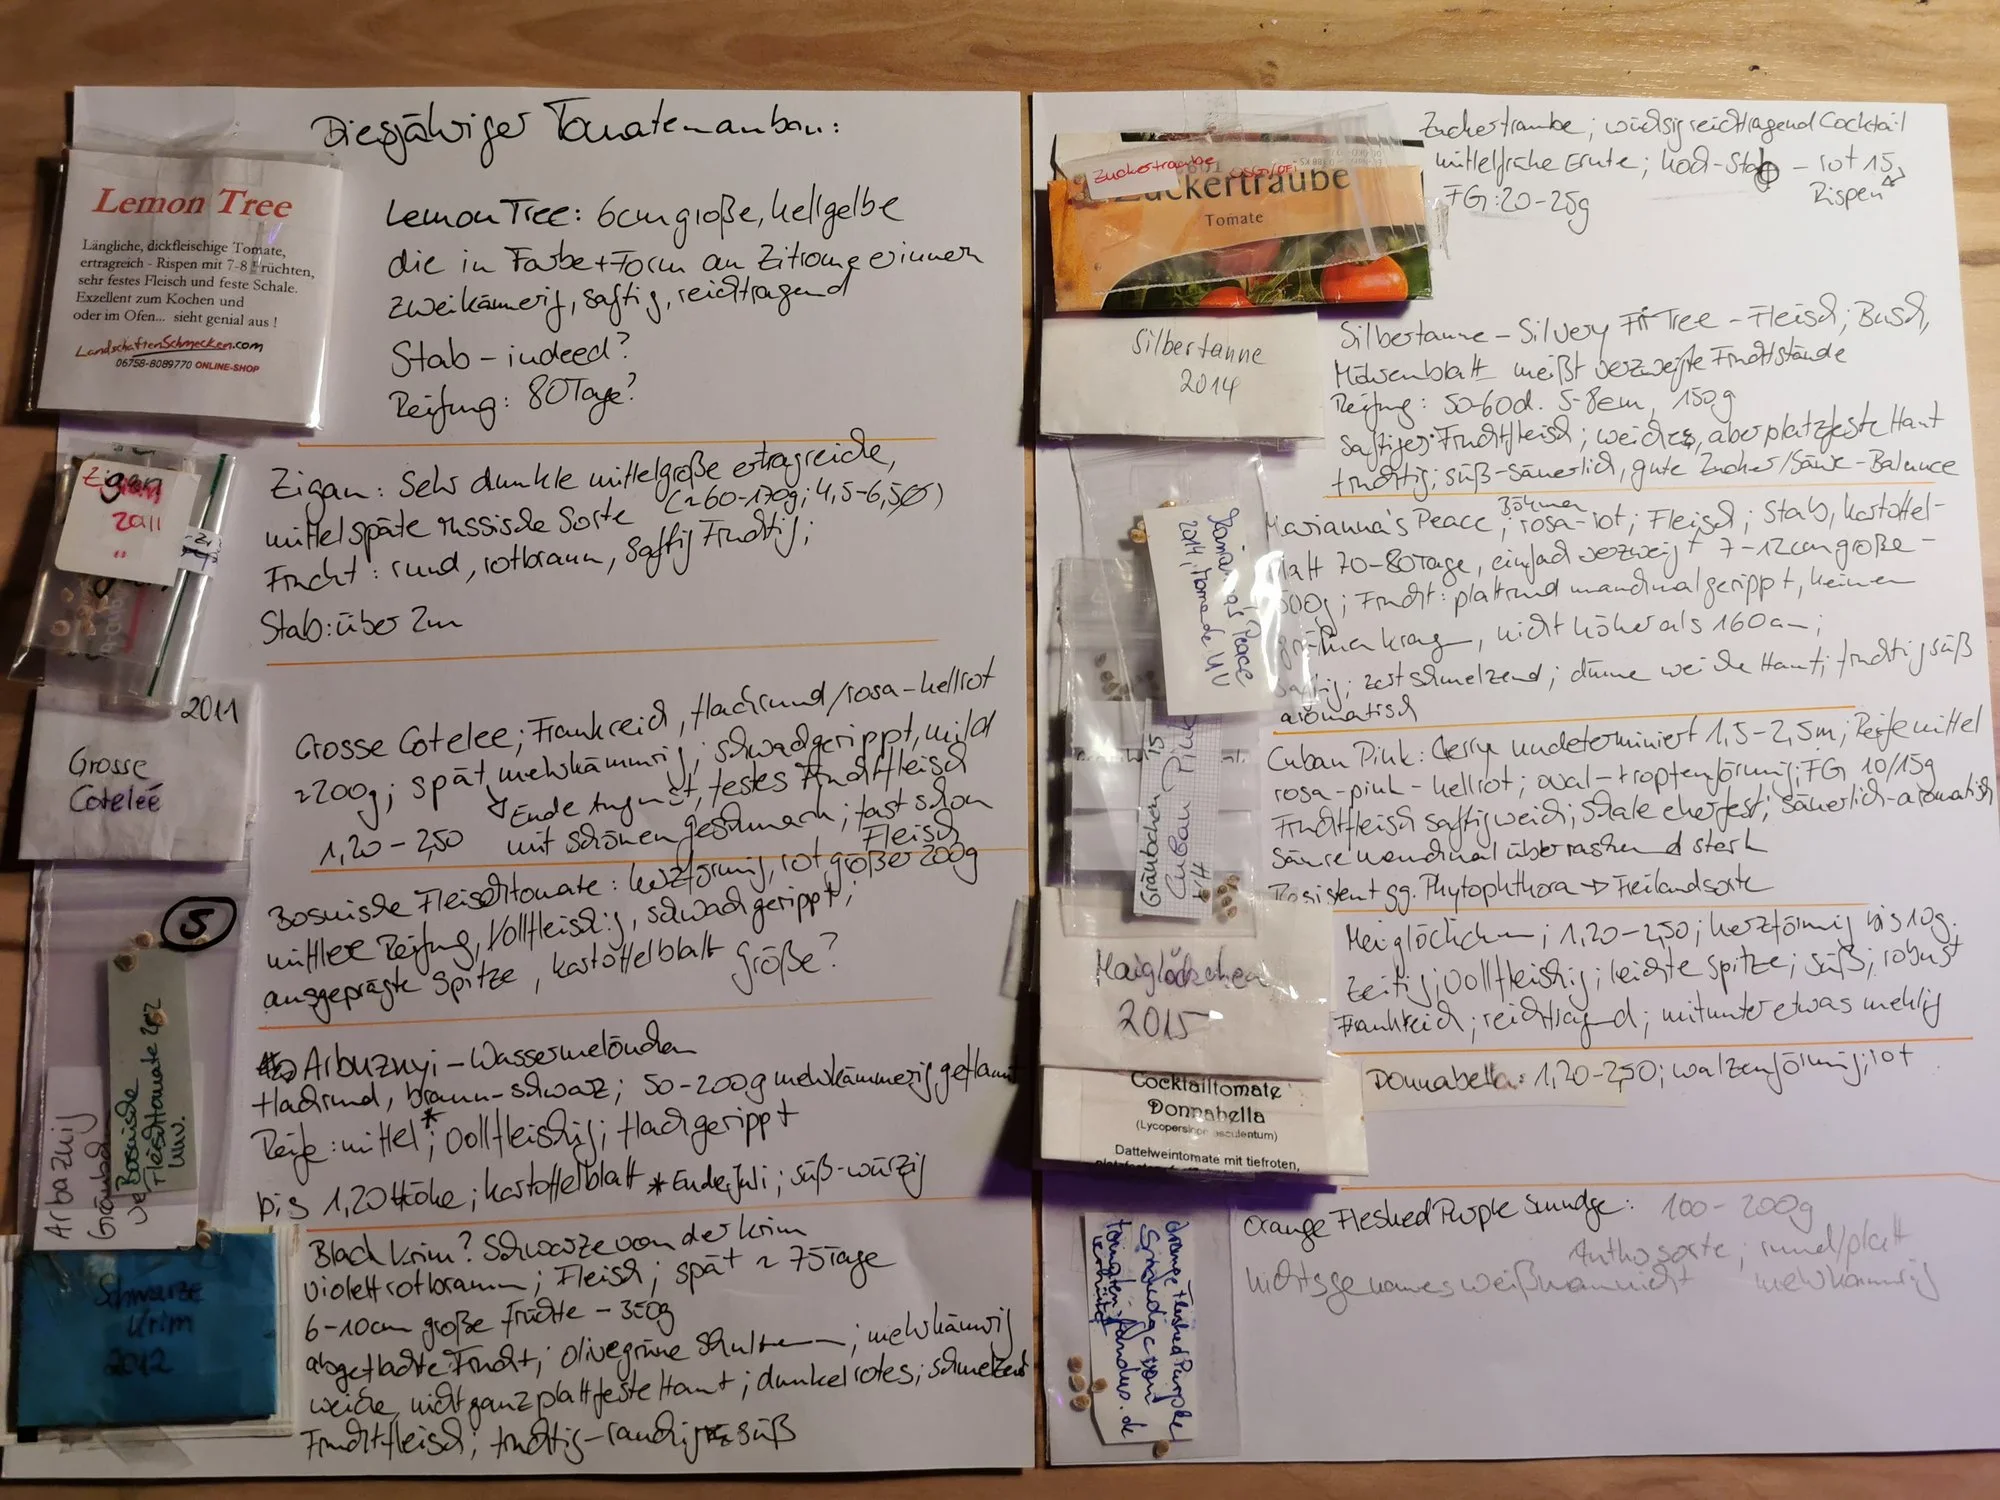 Diesjähriger Tomatenanbau:
Lemon Tree
Längliche, dickfleischige Tomate,
ertragreich - Rispen mit 7-8 Früchten,
sehr festes Fleisch und feste Schale.
Exzellent zum Kochen und
oder im Ofen... sieht genial aus !
LandschaftenSchmecken.com
06758-8089770 ONLINE-SHOP
Lemon Tree: 6cm große, hellgelbe
die in Farbe+Form an Zitrone erinnern
zweikämerig, saftig, reichtragend
Stab - indeed?
Reifung: 80Tage?
Zigan
2011
Zigan: Sehr dunkle mittelgroße ertragreiche,
mittelspäte russische Sorte (~60-170g; 4,5-6,5Ø)
Frucht: rund, rotbraun, saftig fruchtig;
Stab: über 2m
2011
Grosse
Coteleé
Grosse Cotelee; Frankreich, flachrund/rosa-hellrot
~200g; spät, mehrkämmrig; schwachgerippt, mild
Ende August, festes Fruchtfleisch
1,20-2,50 mit schönen geschmack; fast schon
Fleisch
5
Bosnische
Fleischtomate
Bosnische Fleischtomate: herzförmig, rot, größer 200g
mittlere Reifung, Vollfleischig, schwach gerippt;
ausgeprägte Spitze, kartoffelblatt Größe?
Arbaznij
Arbuznyi-Wassermelönchen
flachrund, braun-schwarz; 50-200g mehrkämmerig geflammt
Reife: mittel*; vollfleischig; flachgerippt
bis 1,20 Höhe; kartoffelblatt *Ende Juli; süß-würzig
Schwarze
Krim
2012
Black Krim? Schwarze von der Krim
violettrotbraun; Fleisch; spät ~ 75Tage
6-10cm große Früchte - 350g
abgeflachte Frucht; olivegrüne Schultern; mehrkämrig
weiche, nicht ganz plattfeste Haut; dunkelrotes; schmelzend
Fruchtfleisch; fruchtig-rauchig süß
Zuckertraube
Zuckertraube
Tomate
Zuckertraube; wüchsig reichtragend Cocktail
mittelfrühe Ernte; hoch-Stab - rot 15
Rispen
FG: 20-25g
Silbertanne
2014
Silbertanne - Silvery Fir Tree - Fleisch; Busch,
Möhrenblatt meißt verzweigte Fruchtstände
Reifung: 50-60d. 5-8cm, 150g
saftiges Fruchtfleisch; weiches, aber platzfeste Haut
fruchtig; süß-säuerlich, gute Zucker/Säure-Balance
Marianna's Peace
2014
Böhmen
Marianna's Peace; rosa-rot; Fleisch; Stab, kartoffel-
blatt 70-80Tage, einfach verzweigt 7-12cm große -
600g; Frucht: plattrund manchmal gerippt, keinen
grünen kragen, nicht höher als 160cm;
saftig; zart schmelzend; dünne weiche Haut; fruchtig süß
aromatisch
Gräubchen 15
Cuban Pink
Cuban Pink: Cherry undeterminiert 1,5-2,5m; Reife mittel
rosa-pink-hellrot; oval-tropfenförmig; FG 10/15g
Fruchtfleisch saftig weich; Schale eher fest; säuerlich-aromatisch
Säure manchmal überraschend stark
Resistent gg. Phytophthora → Freilandsorte
Maiglöckchen
2015
Maiglöckchen; 1,20-2,50; herzförmig bis 10g.
zeitig; vollfleischig; leichte Spitze; süß; robust
Frankreich; reichtragend; mitunter etwas mehlig
Cocktailtomate
Donnabella
Dattelweintomate mit tiefroten,
Donnabella: 1,20-2,50; walzenförmig; rot
Orange Fleshed Purple
Smudge
Orange Fleshed Purple Smudge: 100-200g
Anthosorte; rund/platt
nichts genaues weiß man nicht mehrkammrig